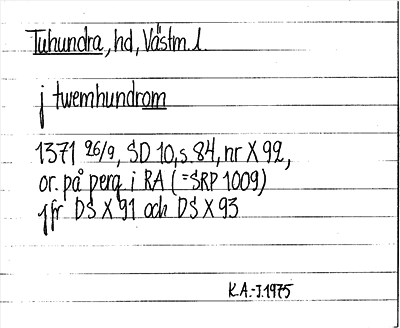 Tuhundra, hd, Västm. l.
j twemhundrom
1371 26/9, SD 10, s. 84, nr X 92,
or. på perg. i RA (=SRP 1009)
jfr DS X 91 och DS X 93
K.A.-J. 1975